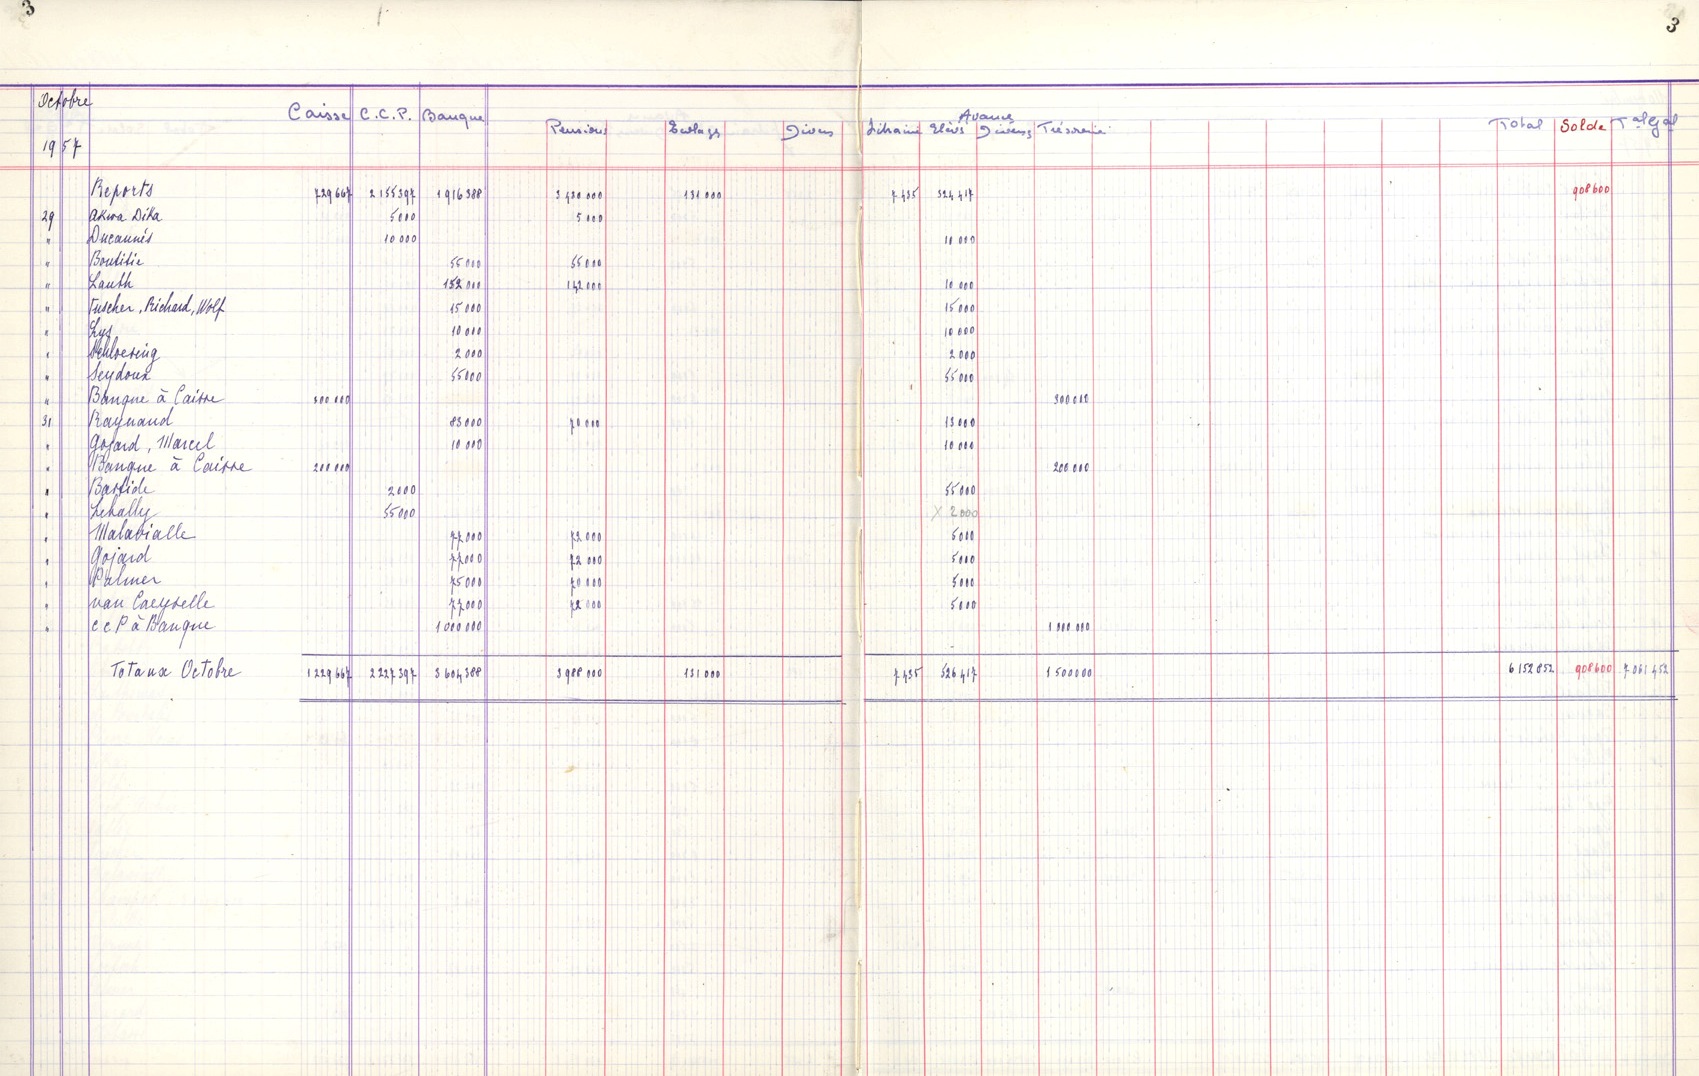 3 3
Octobre
1957
Caisse C.C.P. Banque Pensions Ecolages Divers Librairie Elèves Avances Divers Trésorerie Total Solde Tal Gal
Reports 729667 2155397 1916388 3430000 131000 7435 324417 908600
29 Akwa Dika 5000 5000
" 10000 10000
" Boutitie 55000 55000
" Lauth 152000 142000 10000
" Fuscher, Richard, Wolf 15000 15000
" Lys 10000 10000
" Schloesing 2000 2000
" Seydoux 55000 55000
" Banque à Caisse 300000 300000
31 Raynaud 83000 70000 13000
" Gojard, Marcel 10000 10000
" Banque à Caisse 200000 200000
" Bastide 2000 55000
" 55000 X 2000
" Malavialle 77000 72000 5000
" Gojard 77000 72000 5000
" Palmer 75000 70000 5000
" van Caeyselle 77000 72000 5000
" c c P à Banque 1000000 1000000
Totaux Octobre 1229667 2227397 3604388 3988000 131000 7435 526417 1500000 6152852 908600 7061452